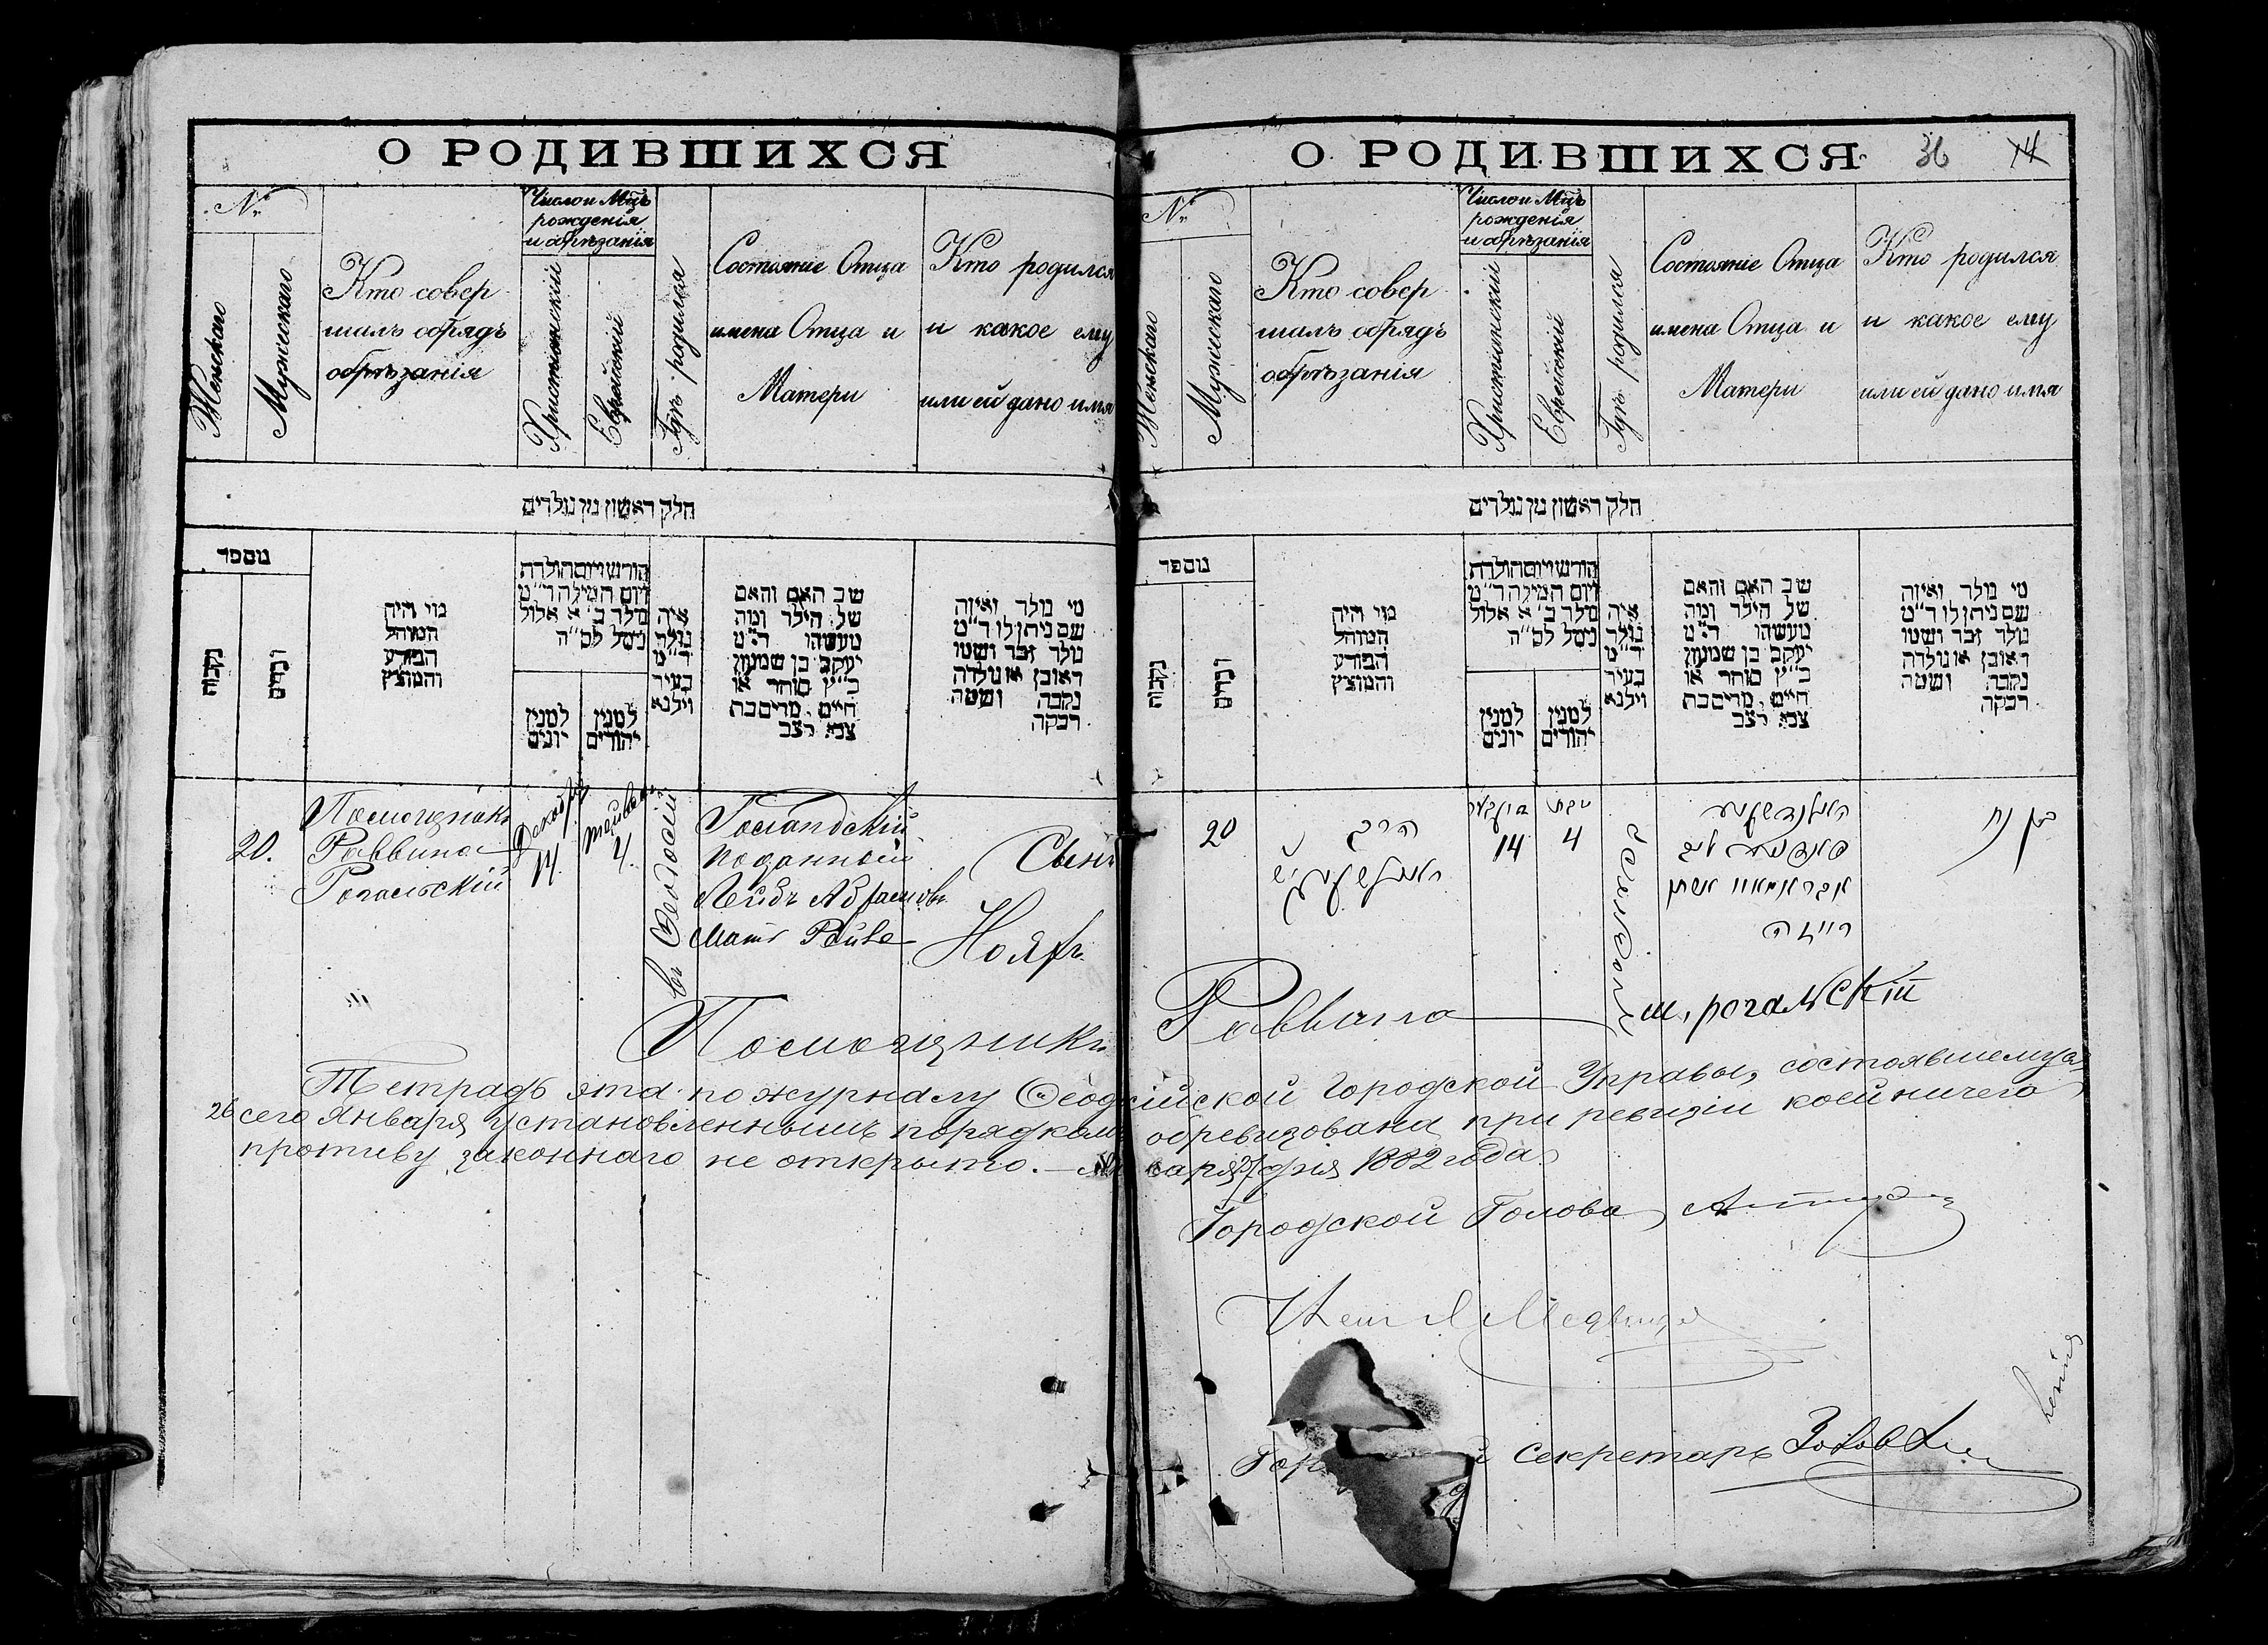 О РОДИВШИХСЯ
№
Женскаго
Мужескаго
Кто совер
шалъ обрядъ
обрѣзанія
Число и Мц̃ъ
рожденія
и обрѣзанія
Христіанскій
Еврейскій
Гдѣ родился
Состояніе Отца
имена Отца и
Матери
Кто родился
и какое ему
или ей дано имя
חלק ראשון מן נולדים
מספר
נקבות
זכרים
מי היה
המוהל
הפורע
והמוצץ
חודש ויום הולדת
ויום המילה ד״מ
נולד ב׳ א אלול
נימל לס״ה
למנין
יונים
למנין
יהודים
איה
נולד
ד״מ
בעיר
וילנא
שב האם והאם
של הילד ומה
מעשהו ד״מ
יעקב בן שמעון
כ״ץ סוחר או
חייט, מרים בת
צבי רצב
מי נולד ואיזה
שם ניתן לו ד״מ
נולד זכר ושמו
ראובן או נולדה
נקבה ושמה
רבקה
20.
Помощникъ
Раввина
Рогальскій
Декабрь
14.
4.
въ Ѳеодосіи
подданный
Лейбъ Абрамовъ
Мать Рейве
Сынъ
Ноях.
Помощникъ
О РОДИВШИХСЯ
36
14
№
Женскаго
Мужескаго
Кто совер
шалъ обрядъ
обрѣзанія
Число и Мц̃ъ
рожденія
и обрѣзанія
Христіанскій
Еврейскій
Гдѣ родился
Состояніе Отца
имена Отца и
Матери
Кто родился
и какое ему
или ей дано имя
חלק ראשון מן נולדים
מספר
נקבות
זכרים
מי היה
המוהל
הפורע
והמוצץ
חודש ויום הולדת
ויום המילה ד״מ
נולד ב׳ א אלול
נימל לס״ה
למנין
יונים
למנין
יהודים
איה
נולד
ד״מ
בעיר
וילנא
שב האם והאם
של הילד ומה
מעשהו ד״מ
יעקב בן שמעון
כ״ץ סוחר או
חייט, מרים בת
צבי רצב
מי נולד ואיזה
שם ניתן לו ד״מ
נולד זכר ושמו
ראובן או נולדה
נקבה ושמה
רבקה
20
הרב
14
טבת
4
אבראמאוו אשתו
בן נח
Раввина
Ш. Рогальскій
Тетрадь эта по журналу Ѳеодосійской Городской Управы, состоявшемуся
26 сего Января установленнымъ порядкомъ обревизована, при ревизіи коей ничего
противу законнаго не открыто. — Января дня 1882 года.
Городской Голова
Секретарь